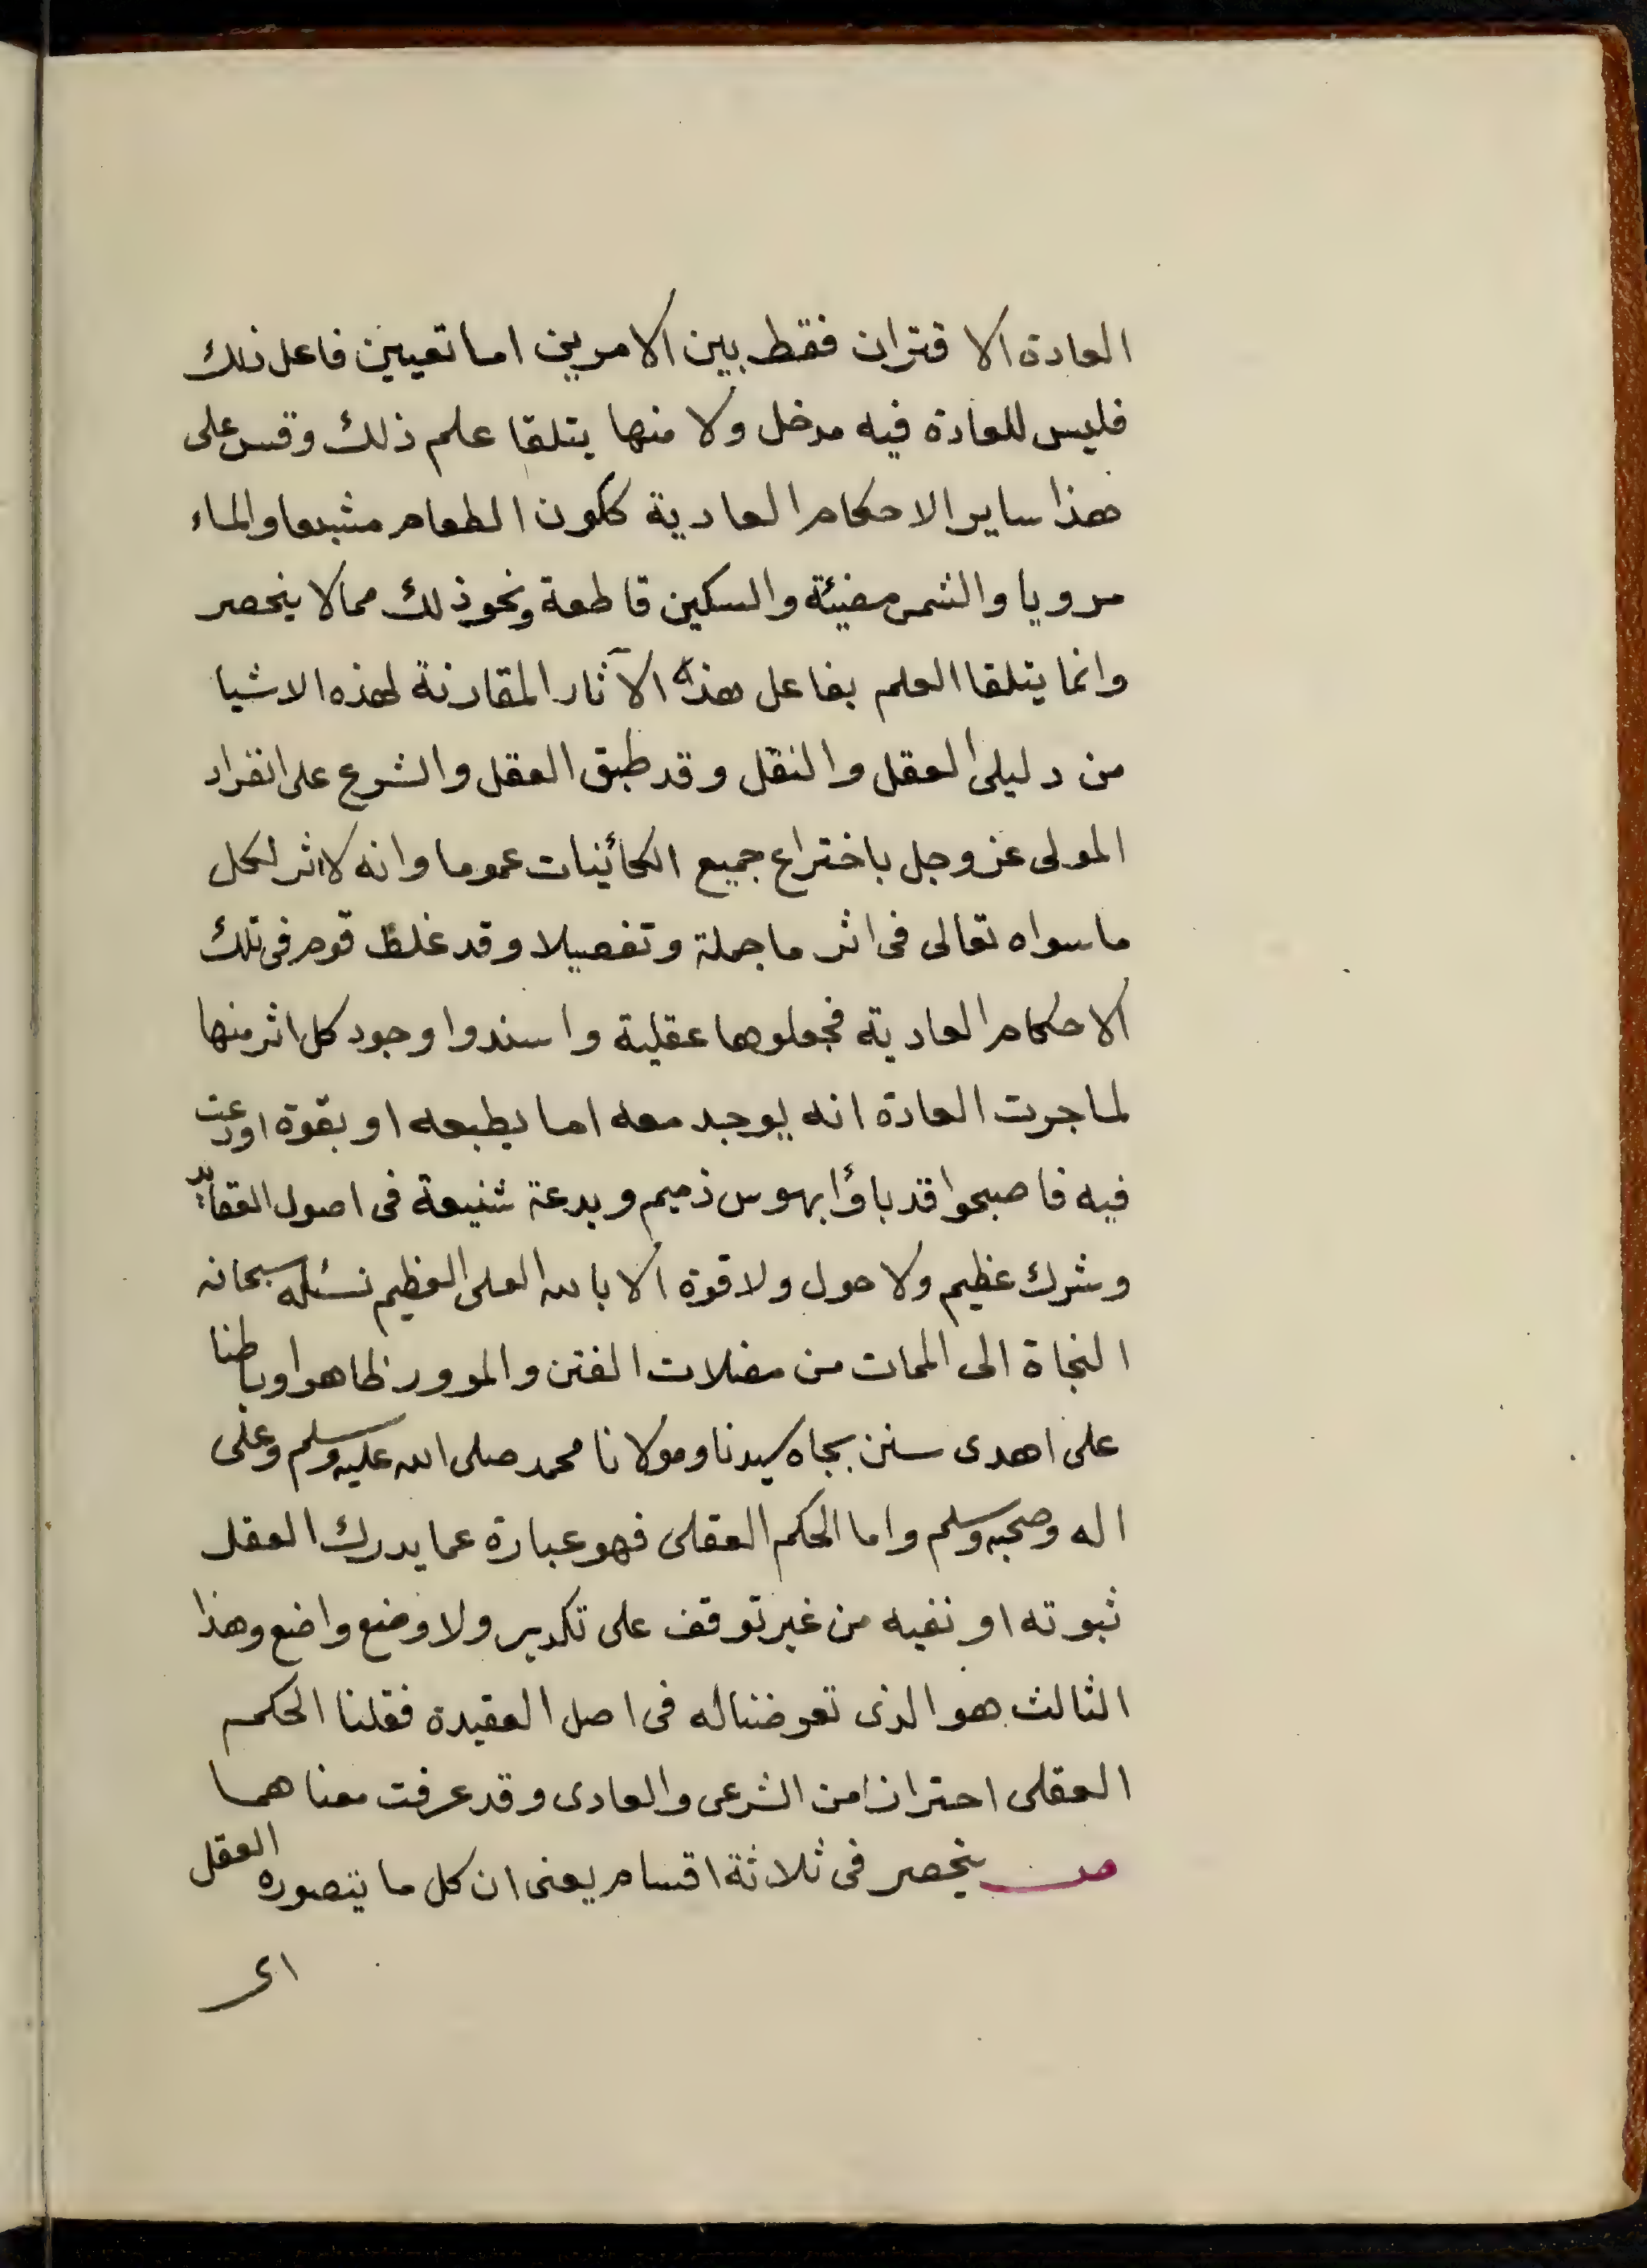 العادة الاقتران فقط بين الامرين اما تعيين فاعل ذلك
فليس للعادة فيه مدخل ولا منها يتلقا علم ذلك وقس على
هذا ساير الاحكام العادية ككون الطعام مشبعا والماء
مرويا والشمس مضيئة والسكين قاطعة ونحو ذلك مما لا ينحصر
وانما يتلقا العلم بفاعل هذه الآثار المقارنة لهذه الاشيا
من دليلى العقل والنقل وقد طبق العقل والشرع على انفراد
المولى عز وجل باختراع جميع الكائينات عموما وانه لا اثر لكل
ما سواه تعالى فى اثر ما جملة وتفصيلا وقد غلط قوم فى تلك
الاحكام العادية فجعلوها عقلية واسندوا وجود كل اثر منها
لما جرت العادة انه يوجد معه اما بطبعه او بقوة اودعت
فيه فاصبحوا قد باؤا بهوس ذميم وبدعة شنيعة فى اصول العقايد
وشرك عظيم ولا حول ولا قوة الا بالله العلى العظيم نسئله سبحانه
النجاة الى الممات من مضلات الفتن والمرور ظاهرا وباطنا
على اهدى سنن بجاه سيدنا ومولانا محمد صلى الله عليه وسلم وعلى
اله وصحبه وسلم واما الحكم العقلى فهو عبارة عما يدرك العقل
ثبوته او نفيه من غير توقف على تكرير ولا وضع واضع وهذا
الثالث هو الذى تعرضنا له فى اصل العقيدة فقلنا الحكم
العقلى احترازا من الشرعى والعادى وقد عرفت معناهما
ص ينحصر فى ثلاثة اقسام يعنى ان كل ما يتصوره العقل
اى